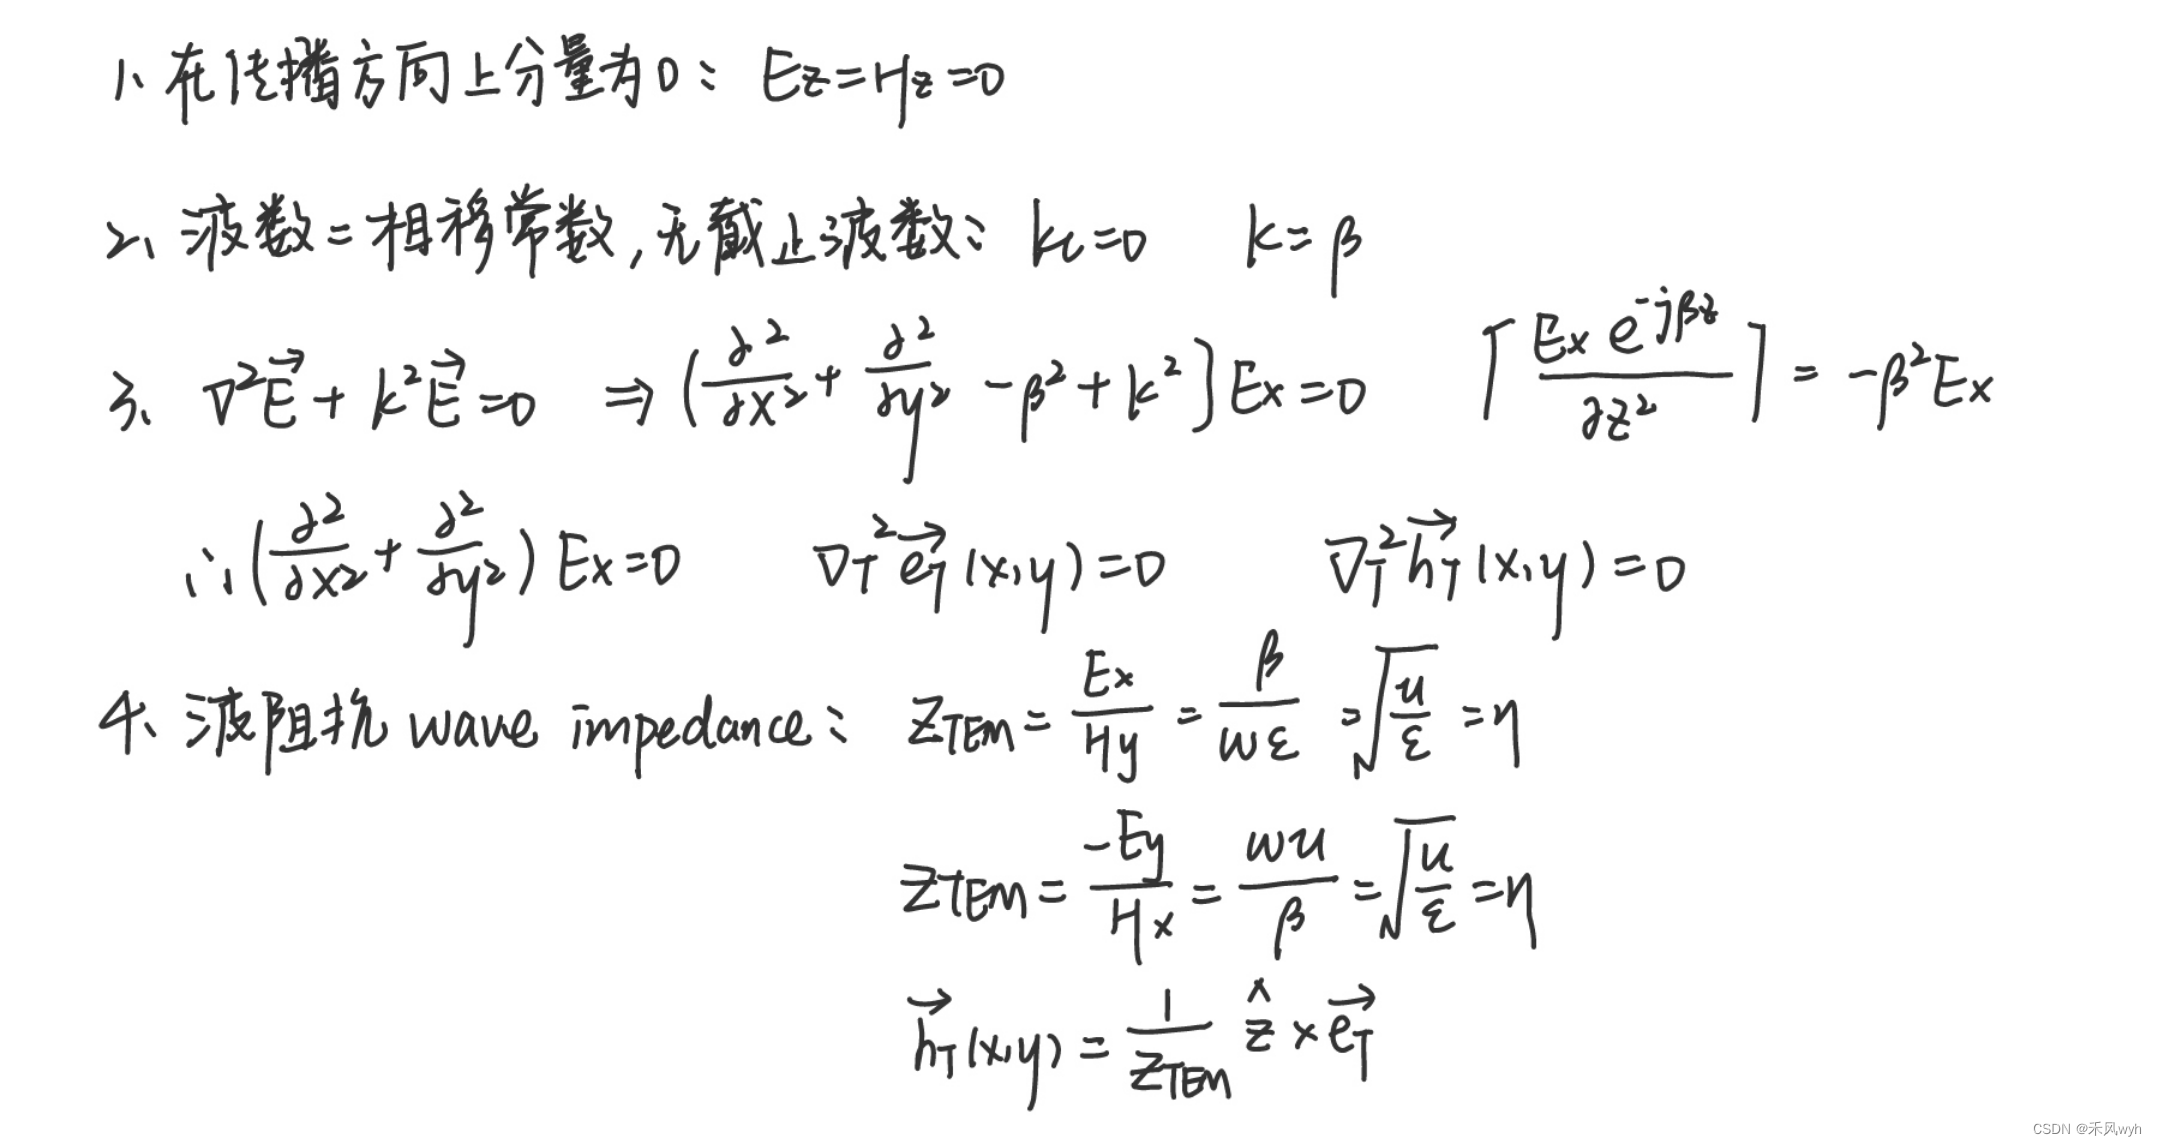 1、在传播方向上分量为0：Ez=Hz=0
2、波数=相移常数,无截止波数：kc=0 k=β
3、∇²E⃗+k²E⃗=0 ⇒ (∂²/∂x²+∂²/∂y²-β²+k²]Ex=0 [Ex e^-jβz/∂z²]=-β²Ex
∴(∂²/∂x²+∂²/∂y²)Ex=0 ∇T²e⃗T(x,y)=0 ∇T²h⃗T(x,y)=0
4、波阻抗 wave impedance：ZTEM=Ex/Hy=β/wε=√(u/ε)=η
ZTEM=-Ey/Hx=wu/β=√(u/ε)=η
h⃗T(x,y)=1/ZTEM ẑ×e⃗T
CSDN @禾风wyh